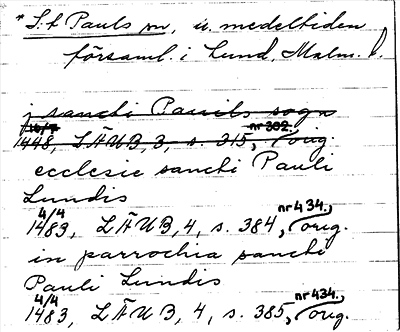 *S:t Pauls sn, u. medeltiden
församl. i Lund, Malm. l.
j sancti Pauils sogn
10/7 nr 302.
1448, LÄUB, 3, s. 315, orig.
ecclesie sancti Pauli
Lundis
4/4 nr 434.,
1483, LÄUB, 4, s. 384, orig.
in parrochia sancti
Pauli Lundis
4/4 nr 434.,
1483, LÄUB, 4, s. 385, orig.